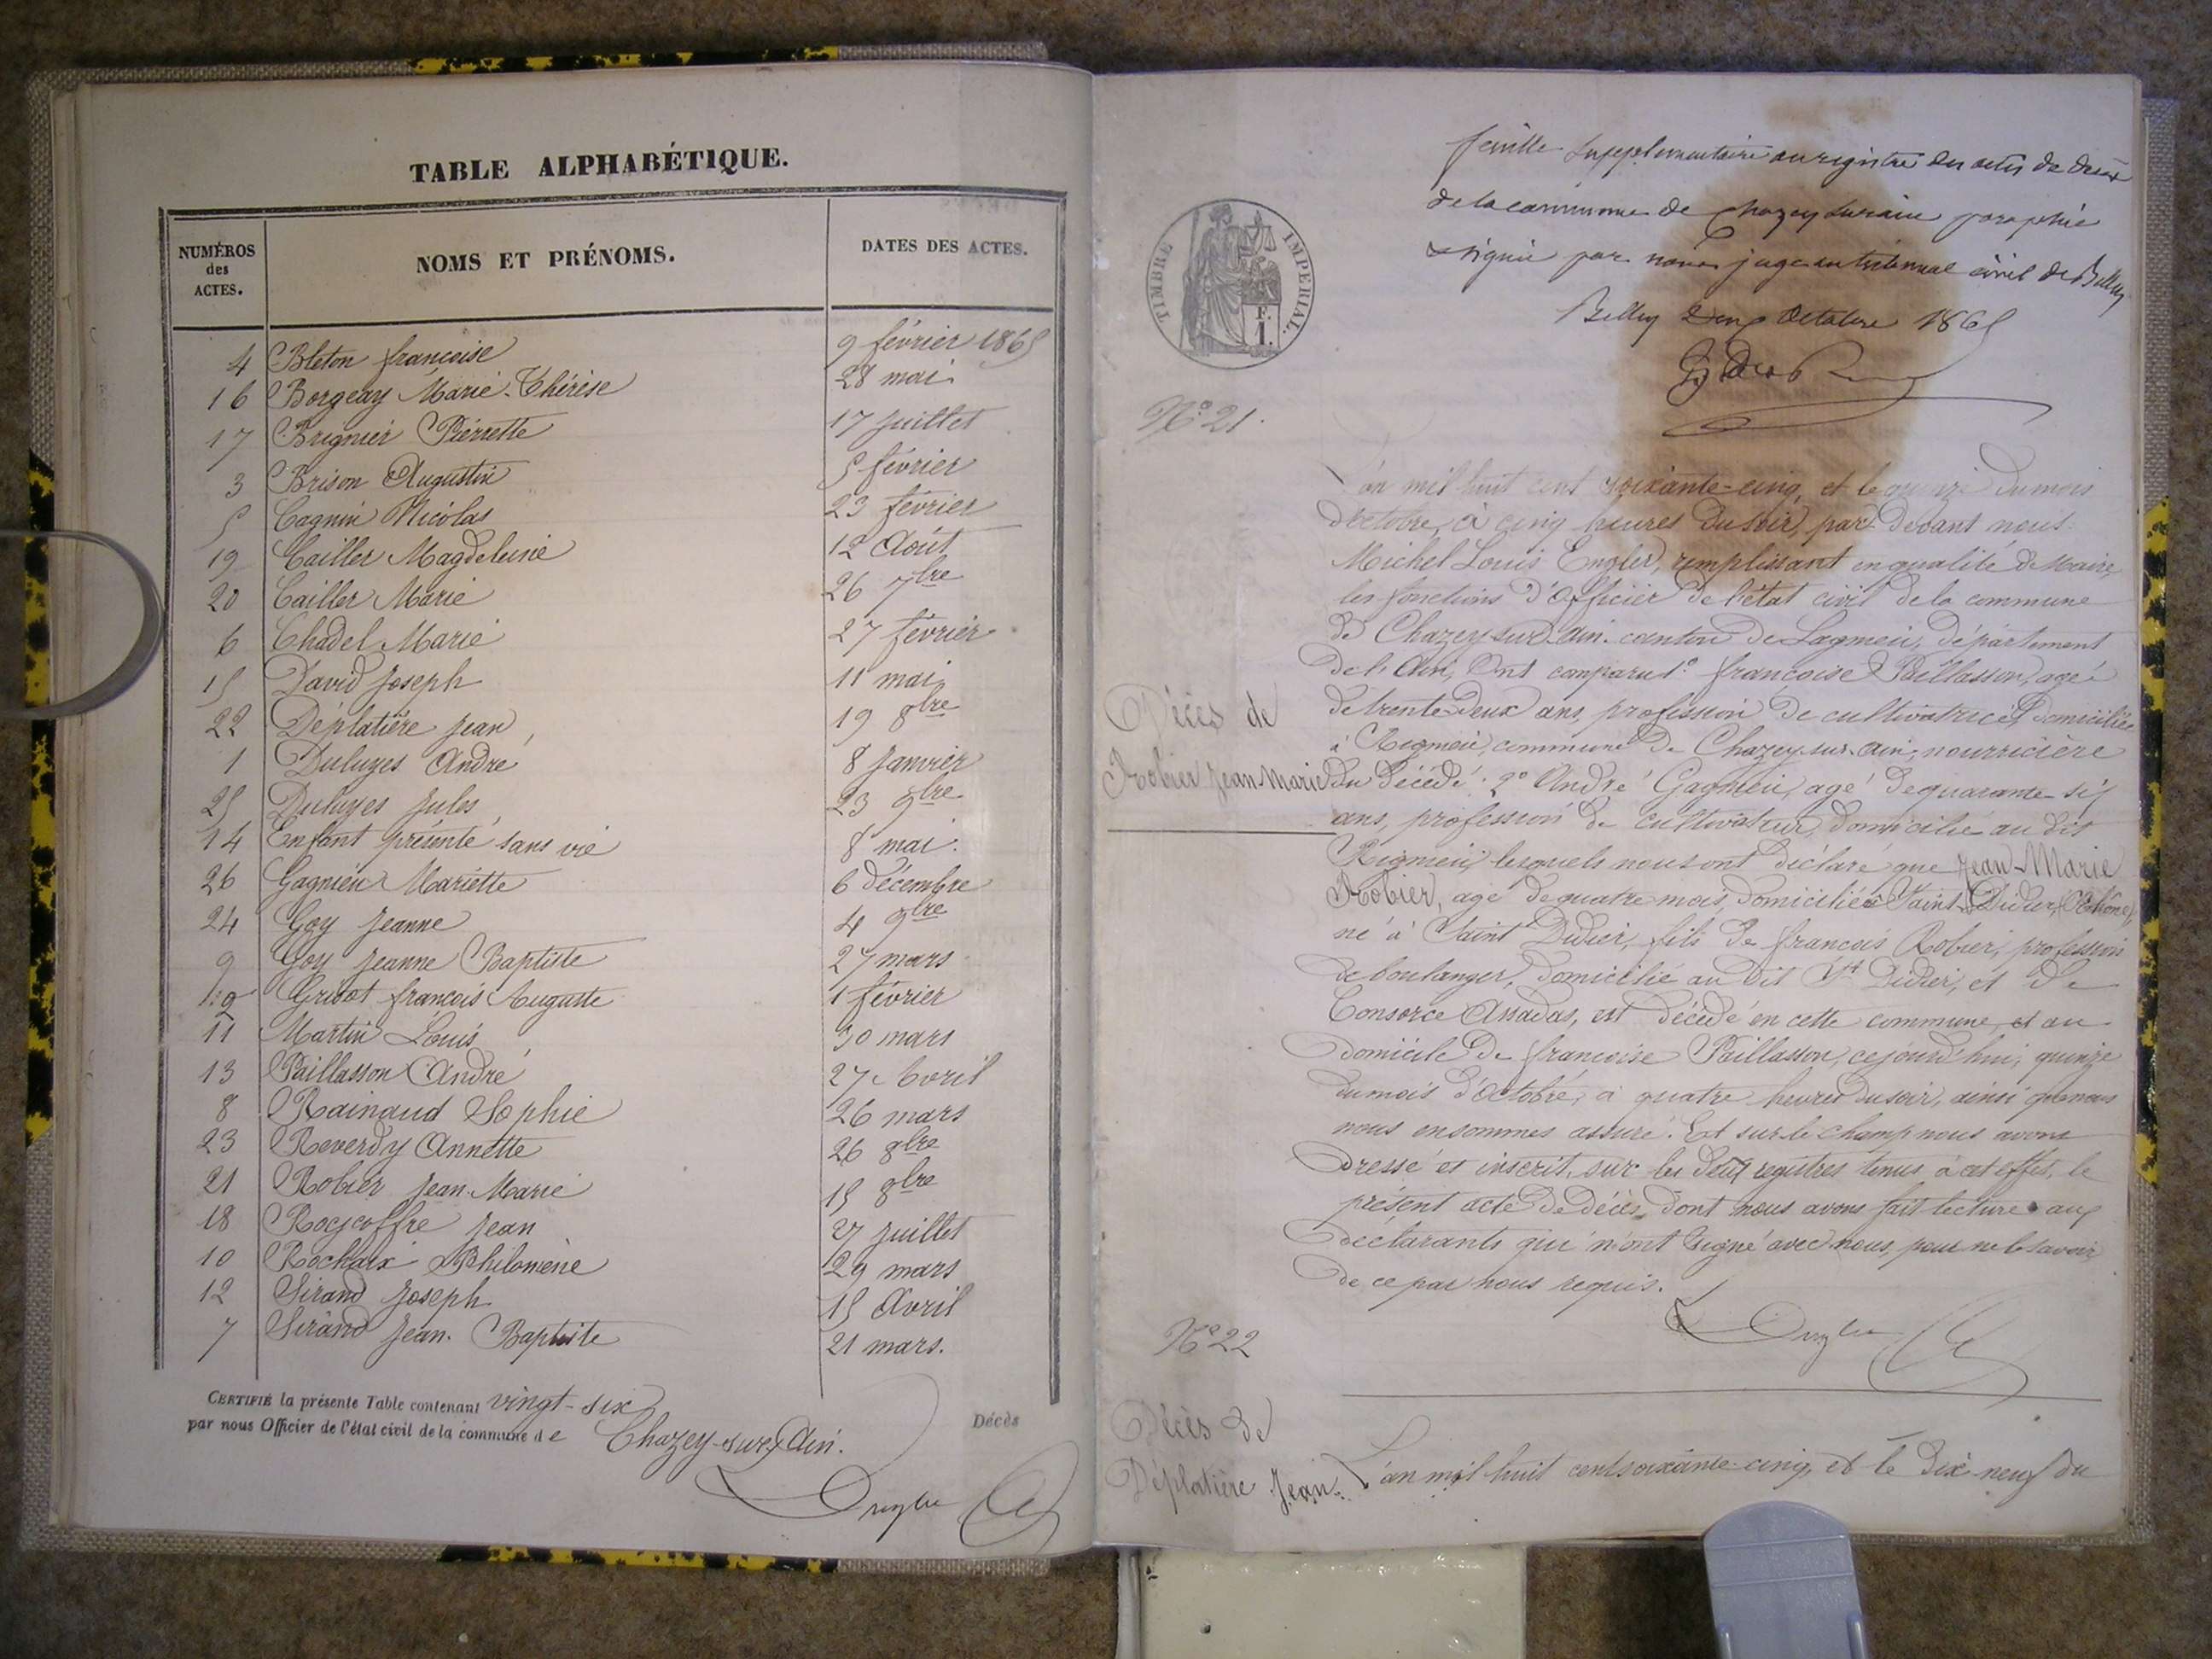 TABLE ALPHABÉTIQUE.
NUMÉROS des ACTES. NOMS ET PRÉNOMS. DATES DES ACTES.
4 Bleton françoise 9 février 1865
16 Borgeay Marie-Thérèse 28 mai
17 Brignier Pierrette 17 juillet
3 Brison Augustin 5 février
5 Cagnin Nicolas 23 février
19 Cailler Magdeleine 12 Août
20 Cailler Marie 26 7bre
6 Chadel Marie 27 février
15 David Joseph 11 mai
22 Déplatière Jean 19 8bre
1 Duluyes André 8 Janvier
25 Duluyes Jules 23 9bre
14 Enfant présenté sans vie 8 mai.
26 Gagnieu Mariette 6 décembre
24 Goy Jeanne 4 9bre
9 Goy Jeanne Baptiste 27 mars
2 Grivot françois Auguste 1 février
11 Martin Louis 30 mars
13 Paillasson André 27 Avril
8 Rainaud Sophie 26 mars
23 Reverdy Annette 26 8bre
21 Robier Jean-Marie 15 8bre
18 Jean 27 juillet
10 Rochaix Philomène 29 mars
12 Sirand Joseph 15 Avril
7 Sirand Jean-Baptiste 21 mars.
CERTIFIÉ la présente Table contenant vingt-six Décès
par nous Officier de l'état civil de la commune de Chazey-sur-Ain.
feuille supplémentaire au registre des actes de décès
de la commune de Chazey sur ain paraphée
& signée par nous juge au tribunal civil de Belley
Belley deux Octobre 1865
TIMBRE IMPERIAL.
1 F.
N° 21.
Décès de
Robier Jean-Marie
L'an mil huit cent soixante-cinq, et le quinze du mois
d'octobre, à cinq heures du soir, par devant nous
Michel Louis Engler, remplissant en qualité de Maire
les fonctions d'Officier de l'état civil de la commune
de Chazey-sur-Ain canton de Lagnieu, département
de l'Ain, Ont comparu 1° françoise Paillasson, agé
de trente deux ans, profession de cultivatrice, domiciliée
à Rigneu, commune de Chazey-sur-ain, nourricière
du décédé; 2° André Gagnieu, agé de quarante-six
ans, profession de cultivateur, domicilié au dit
Rigneu, lesquels nous ont déclaré que Jean-Marie
Robier, agé de quatre mois, domicilié à Saint Didier, (Rhône)
né à Saint Didier, fils de françois Robier, profession
de boulanger, domicilié au dit St Didier, et de
Consorce Assadas, est décédé en cette commune, et au
domicile de françoise Paillasson, cejourd'hui, quinze
du mois d'Octobre, à quatre heures du soir, ainsi que nous
nous en sommes assuré. Et sur le champ nous avons
dressé et inscrit, sur les deux registres tenus à cet effet, le
présent acte de décès dont nous avons fait lecture aux
déclarants qui n'ont signé avec nous, pour ne le savoir
de ce par nous requis.
N° 22
Décès de
Déplatière Jean.
L'an mil huit cent soixante-cinq, et le dix-neuf du